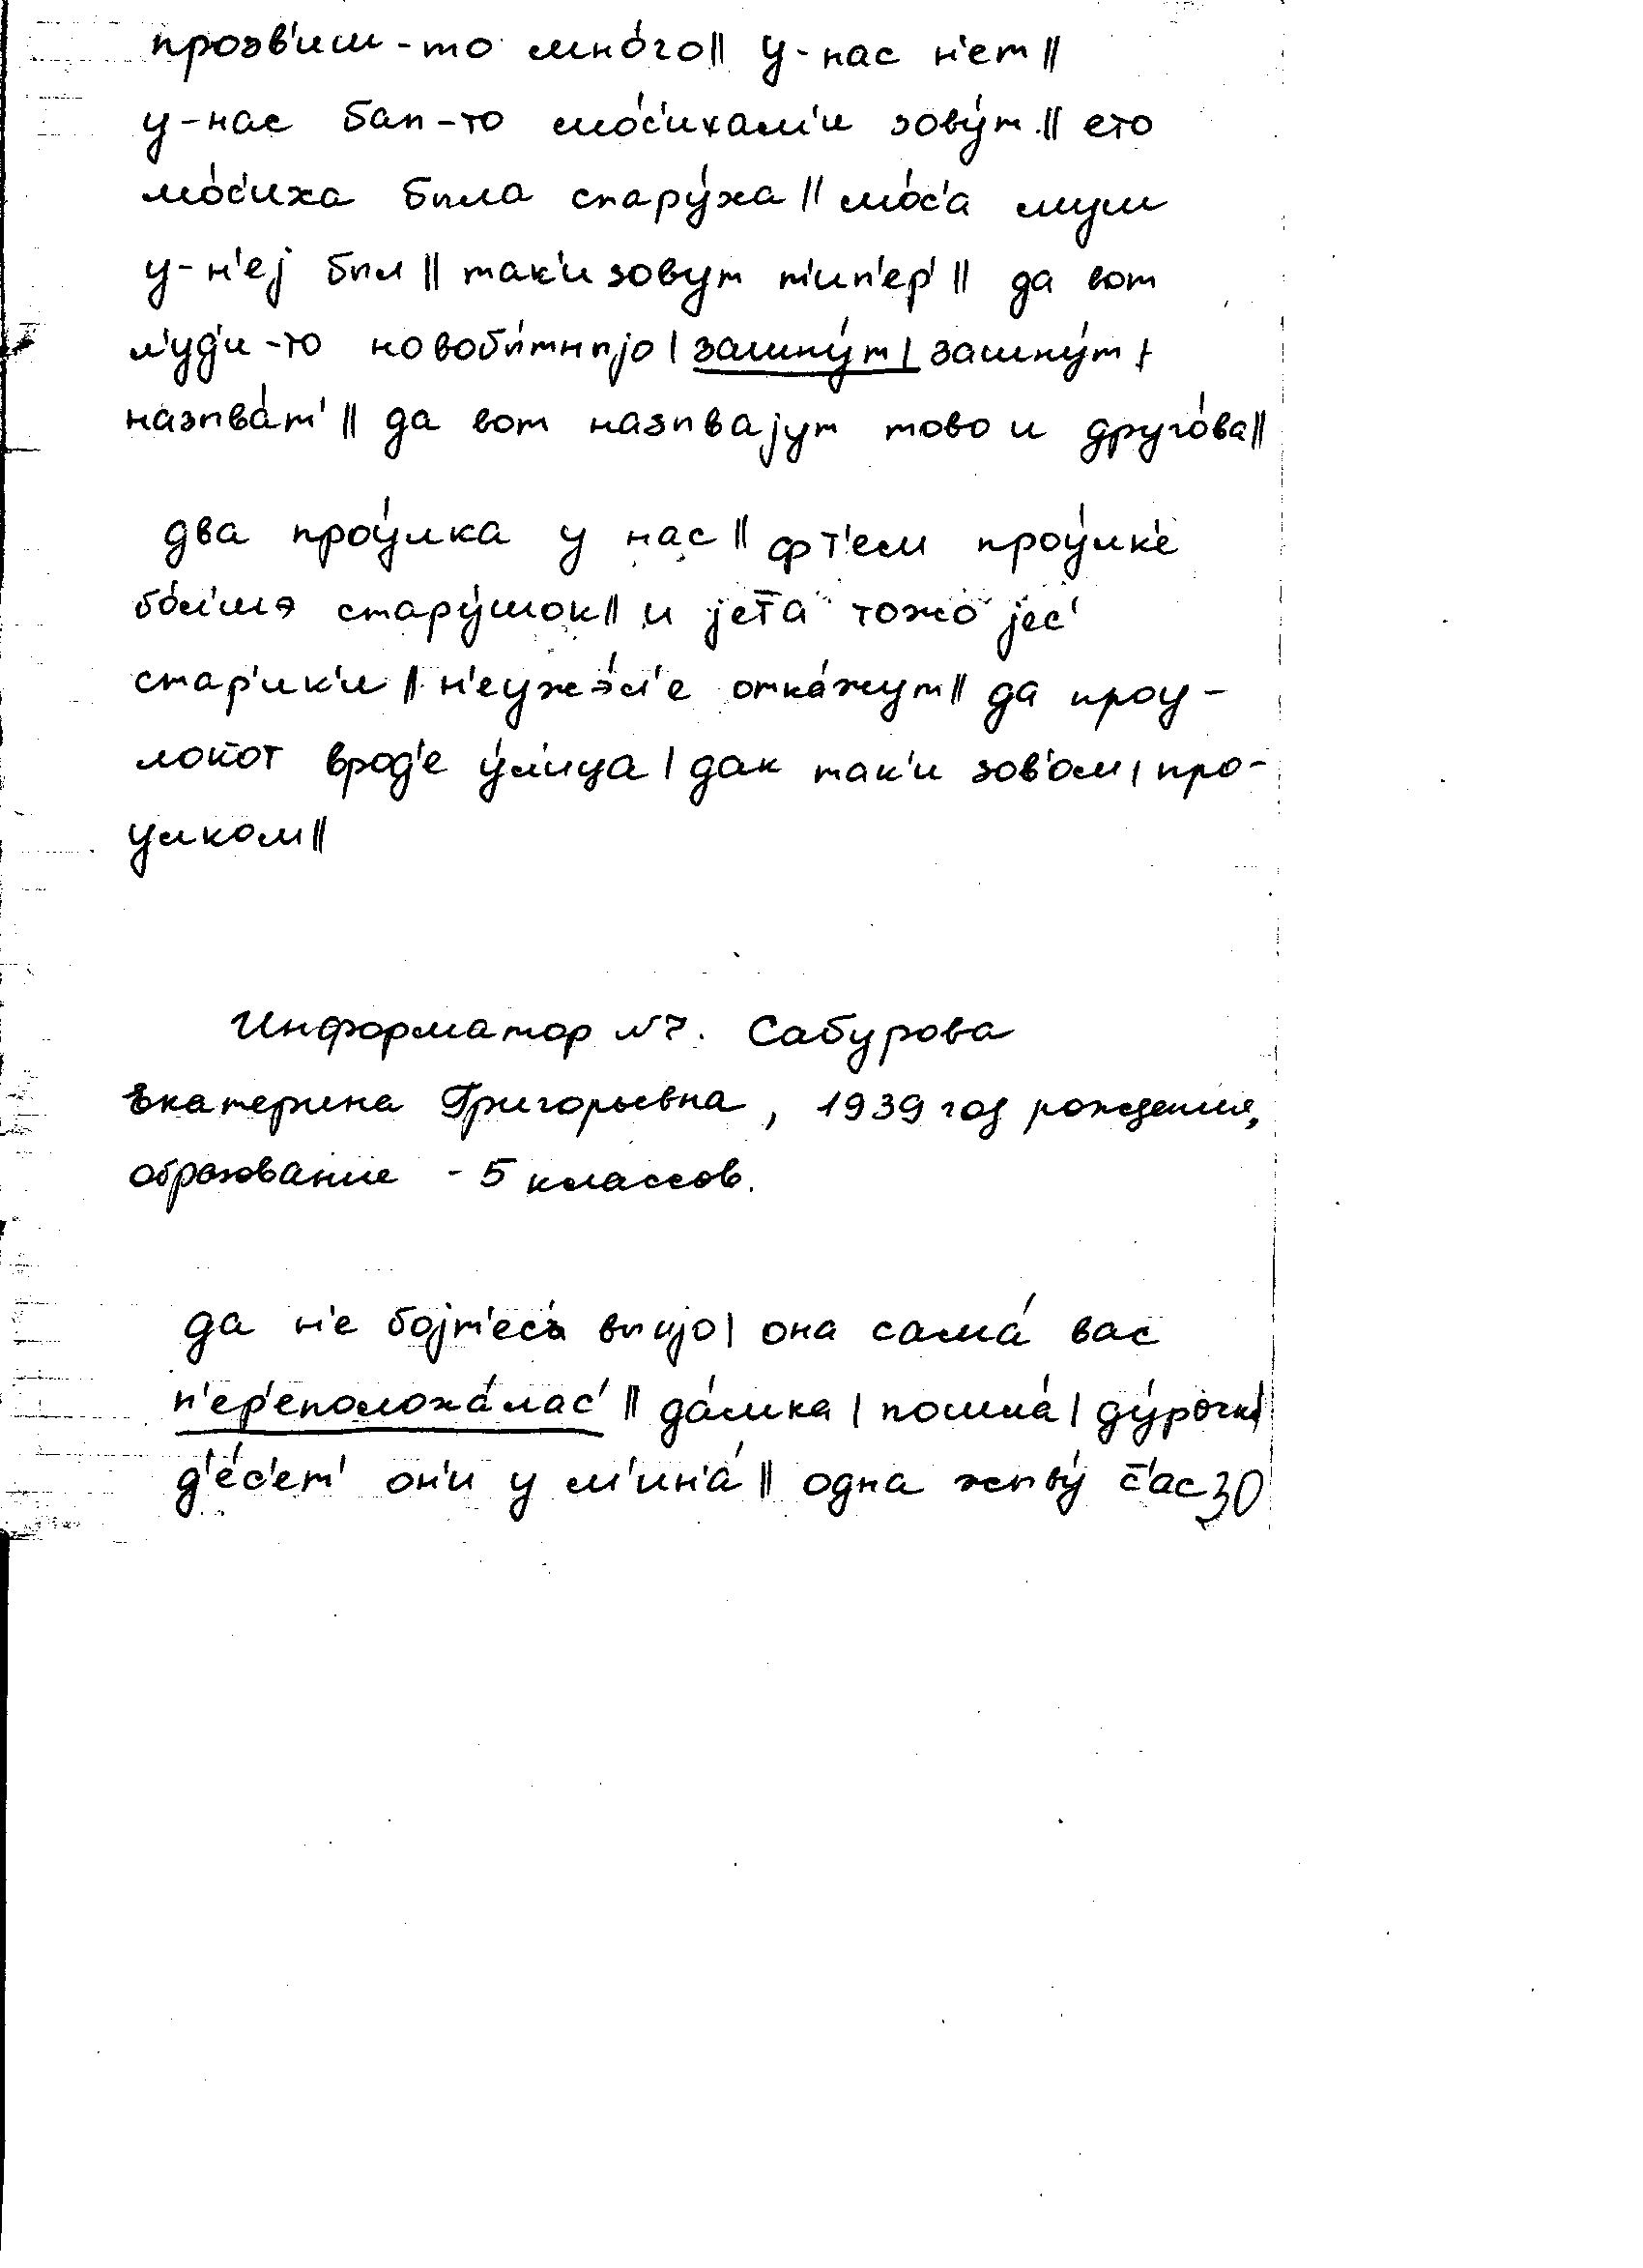 прозв'иш-то мно́го‖ у-нас н'ет‖
у-нас бап-то мо́с'иха́м'и зову́т‖ ето
мо́с'иха была стару́ха‖ мо́с'а муш
у-н'еј был‖ так'и зовут т'ип'ер'‖ да вот
л'у́д'и-то новоби́тныјо | зашну́т | зашну́т |
называ́т'‖ да вот называјут тово и друго́ва‖
два проу́лка у нас‖ фт'ем проу́лк'е
бо́л'шэ стару́шок‖ и јета тожо јес'
стар'ик'и‖ н'еужэ́л'е отка́жут‖ да проу-
локот врод'е у́л'ица | дак так'и зов'ом | про-
улком‖
Информатор №7. Сабурова
Екатерина Григорьевна, 1939 год рождения,
образование - 5 классов.
да н'е бојт'ес' выијо | она сама́ вас
п'ер'еполоха́лас'‖ да́мка | пошла́ | ду́рочка|
д'е́с'ет' он'и у м'ин'а́‖ одна жыву́ с'ас 30